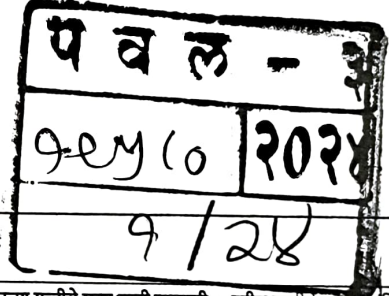 प व ल - ३
१९५८० २०२४
१/२४